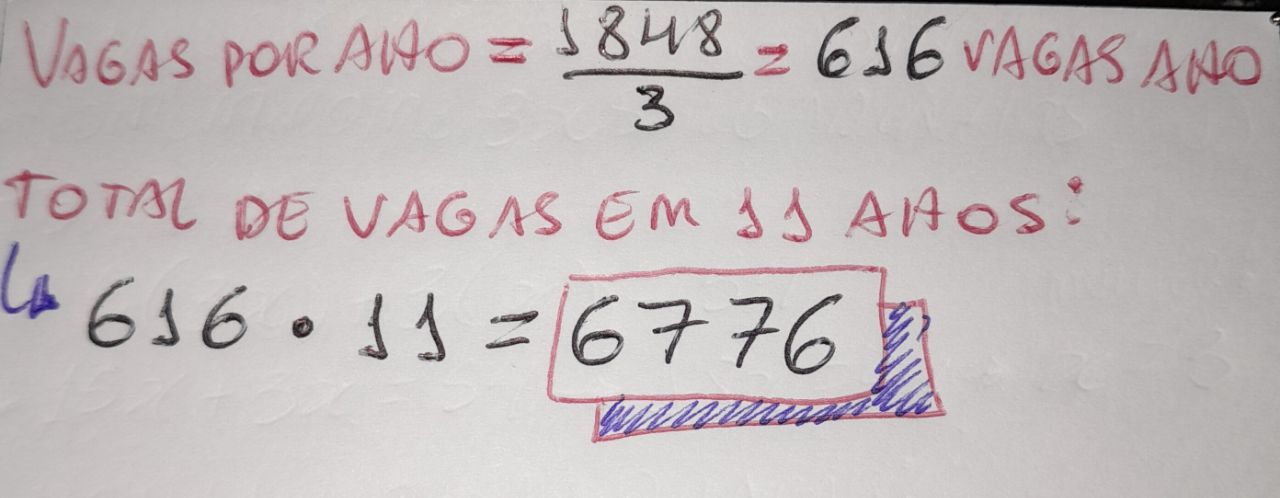 VAGAS POR ANO = 1848/3 = 616 VAGAS ANO
TOTAL DE VAGAS EM 11 ANOS:
↳ 616 · 11 = 6776